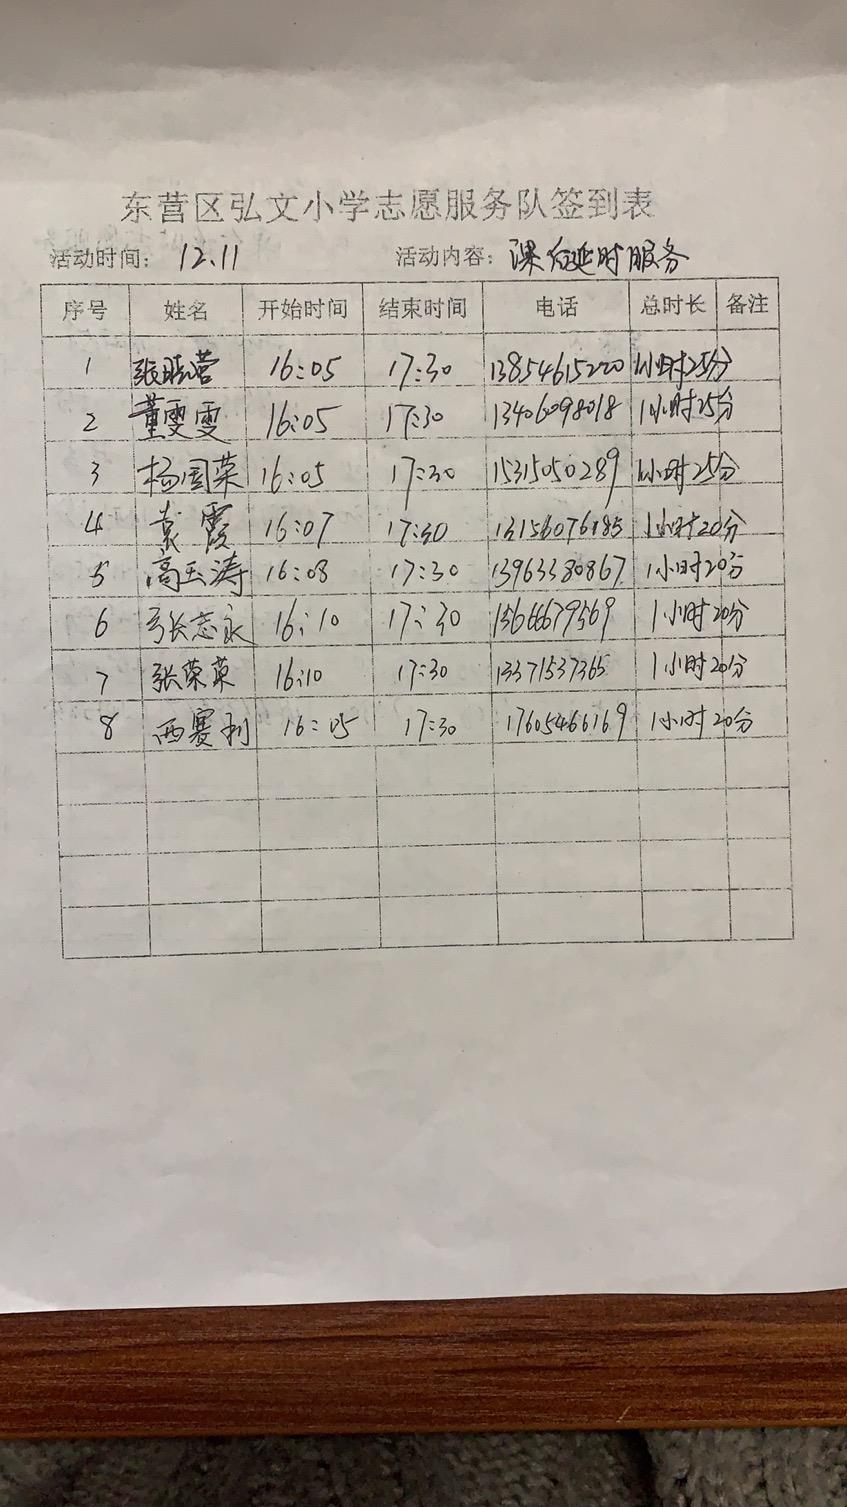 东营区弘文小学志愿服务队签到表
活动时间：12.11 活动内容：课后延时服务
序号 姓名 开始时间 结束时间 电话 总时长 备注
1 张晓营 16:05 17:30 13854615220 1小时25分
2 董雯雯 16:05 17:30 13406098018 1小时25分
3 杨国荣 16:05 17:30 15315050289 1小时25分
4 袁霞 16:07 17:30 13156076185 1小时20分
5 高玉涛 16:08 17:30 13963380867 1小时20分
6 张志永 16:10 17:30 13666679569 1小时20分
7 张荣英 16:10 17:30 13371537365 1小时20分
8 西赛利 16:05 17:30 17605466169 1小时20分